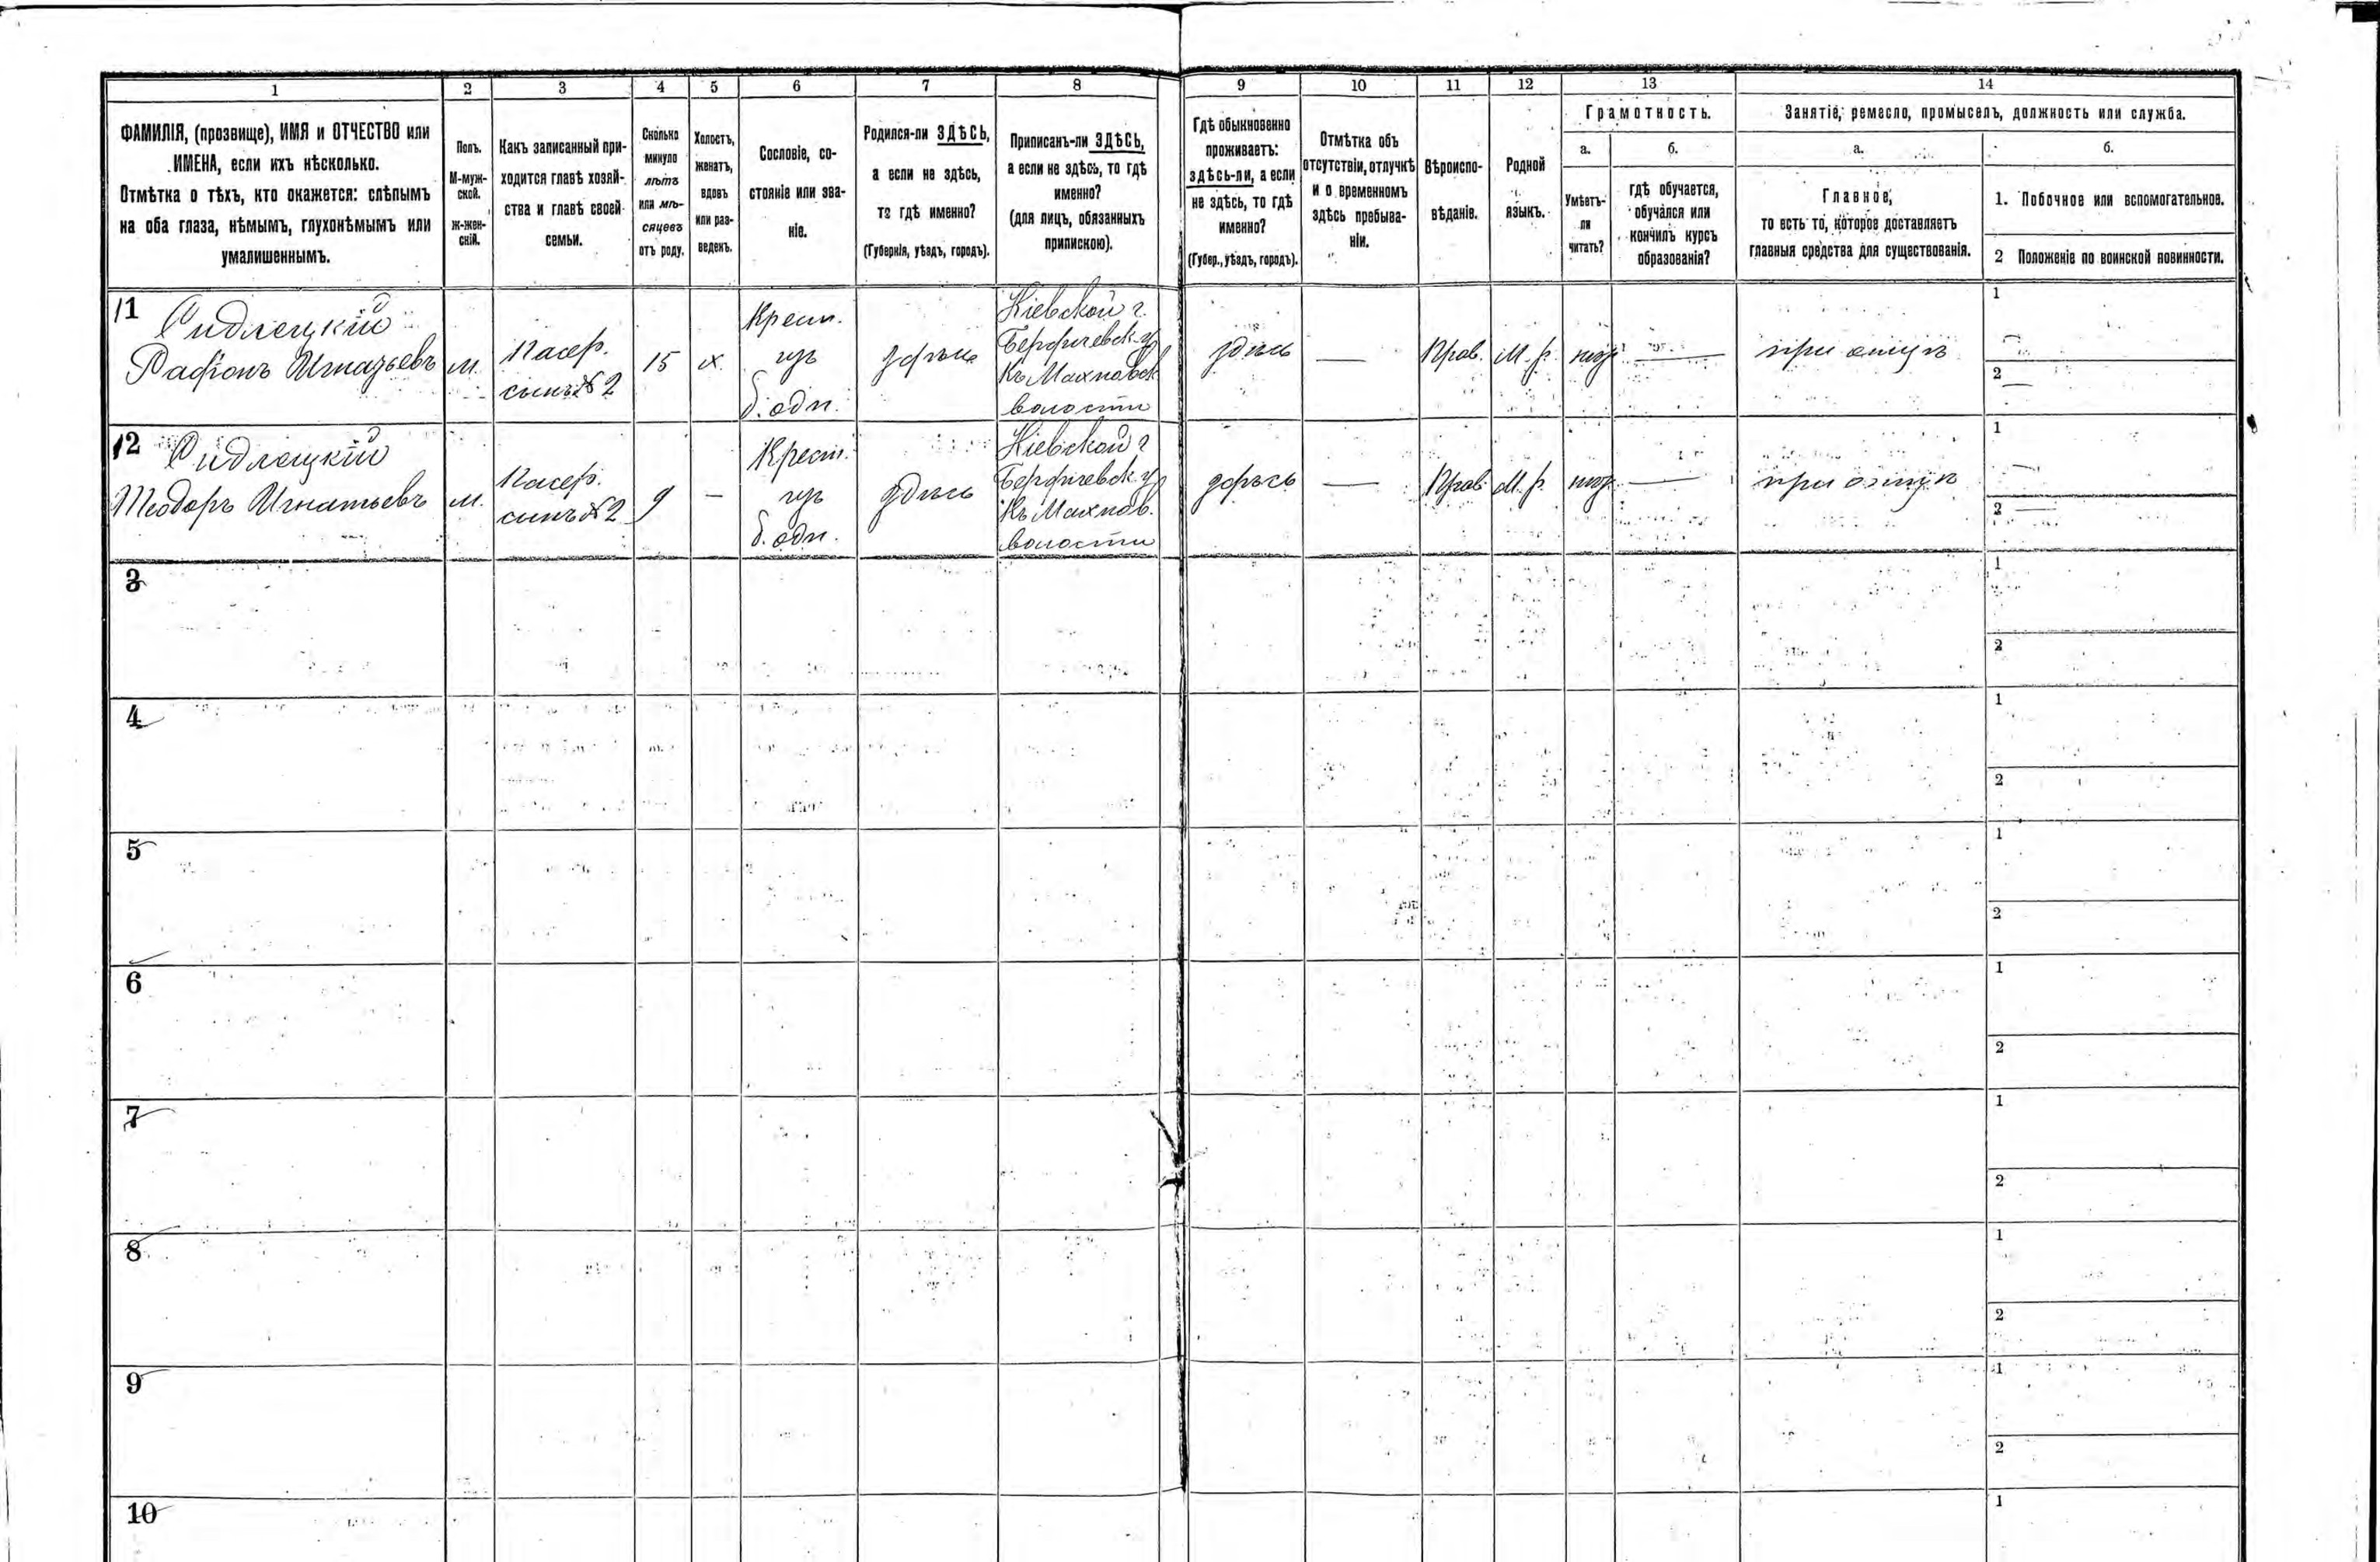 1 2 3 4 5 6 7 8 9 10 11 12 13 14
ФАМИЛІЯ, (прозвище), ИМЯ и ОТЧЕСТВО или
ИМЕНА, если ихъ нѣсколько.
Отмѣтка о тѣхъ, кто окажется: слѣпымъ
на оба глаза, нѣмымъ, глухонѣмымъ или
умалишеннымъ.
Полъ.
М-муж-
ской.
ж-жен-
скій.
Какъ записанный при-
ходится главѣ хозяй-
ства и главѣ своей
семьи.
Сколько
минуло
лѣтъ
или мѣ-
сяцевъ
отъ роду.
Холостъ,
женатъ,
вдовъ
или раз-
веденъ.
Сословіе, со-
стояніе или зва-
ніе.
Родился-ли ЗДѢСЬ,
а если не здѣсь,
то гдѣ именно?
(Губернія, уѣздъ, городъ).
Приписанъ-ли ЗДѢСЬ,
а если не здѣсь, то гдѣ
именно?
(для лицъ, обязанныхъ
припискою).
Гдѣ обыкновенно
проживаетъ:
здѣсь-ли, а если
не здѣсь, то гдѣ
именно?
(Губер., уѣздъ, городъ).
Отмѣтка объ
отсутствіи, отлучкѣ
и о временномъ
здѣсь пребыва-
ніи.
Вѣроиспо-
вѣданіе.
Родной
языкъ.
Грамотность.
а.
Умѣетъ-
ли
читать?
б.
гдѣ обучается,
обучался или
кончилъ курсъ
образованія?
Занятіе, ремесло, промыселъ, должность или служба.
а.
Главное,
то есть то, которое доставляетъ
главныя средства для существованія.
б.
1. Побочное или вспомогательное.
2 Положеніе по воинской повинности.
11
Сидлецкій
Рафіонъ Игнатьевъ
м.
Пасер.
сынъ № 2
15
х.
Крест.
изъ
б. одн.
здѣсь
Кіевской г.
Бердичевск. у.
Къ Махновск.
волости
здѣсь
—
Прав.
М. р.
—
при отцѣ
1
2 —
12
Сидлецкій
Теодоръ Игнатьевъ
м.
Пасер.
сынъ № 2
9
—
Крест.
изъ
б. одн.
здѣсь
Кіевской г
Бердичевск. у.
Къ Махнов.
волости
здѣсь
—
Прав.
М. р.
—
при отцѣ
1
2 —
3
1
2
4
1
2
5
1
2
6
1
2
7
1
2
8
1
2
9
1
2
10
1